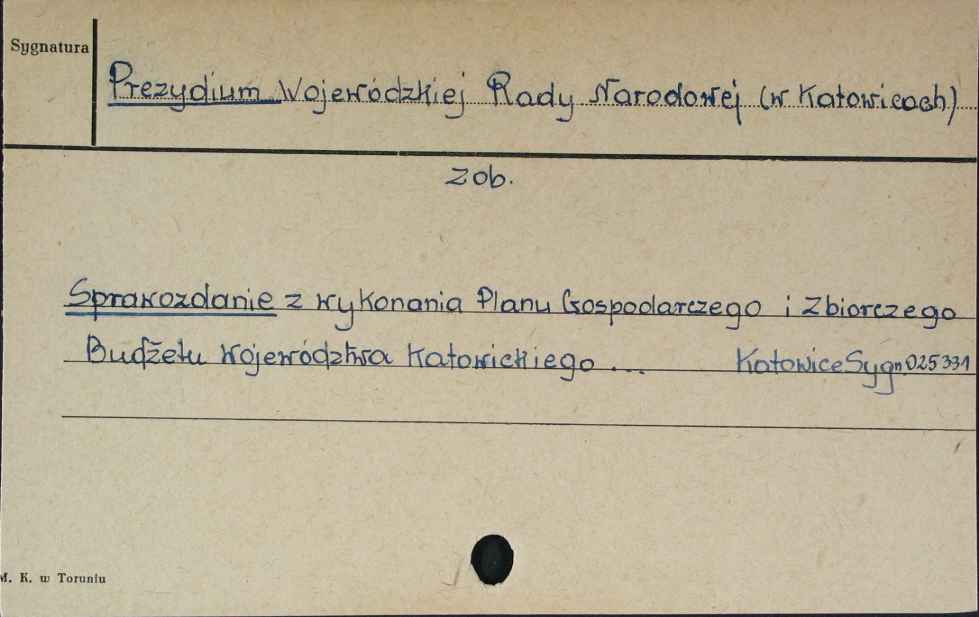 Sygnatura
Prezydium Wojewódzkiej Rady Narodowej (w Katowicach)
zob.
Sprawozdanie z wykonania Planu Gospodarczego i Zbiorczego
Budżetu Województwa Katowickiego ... Katowice Sygn 025331
M. K. w Toruniu